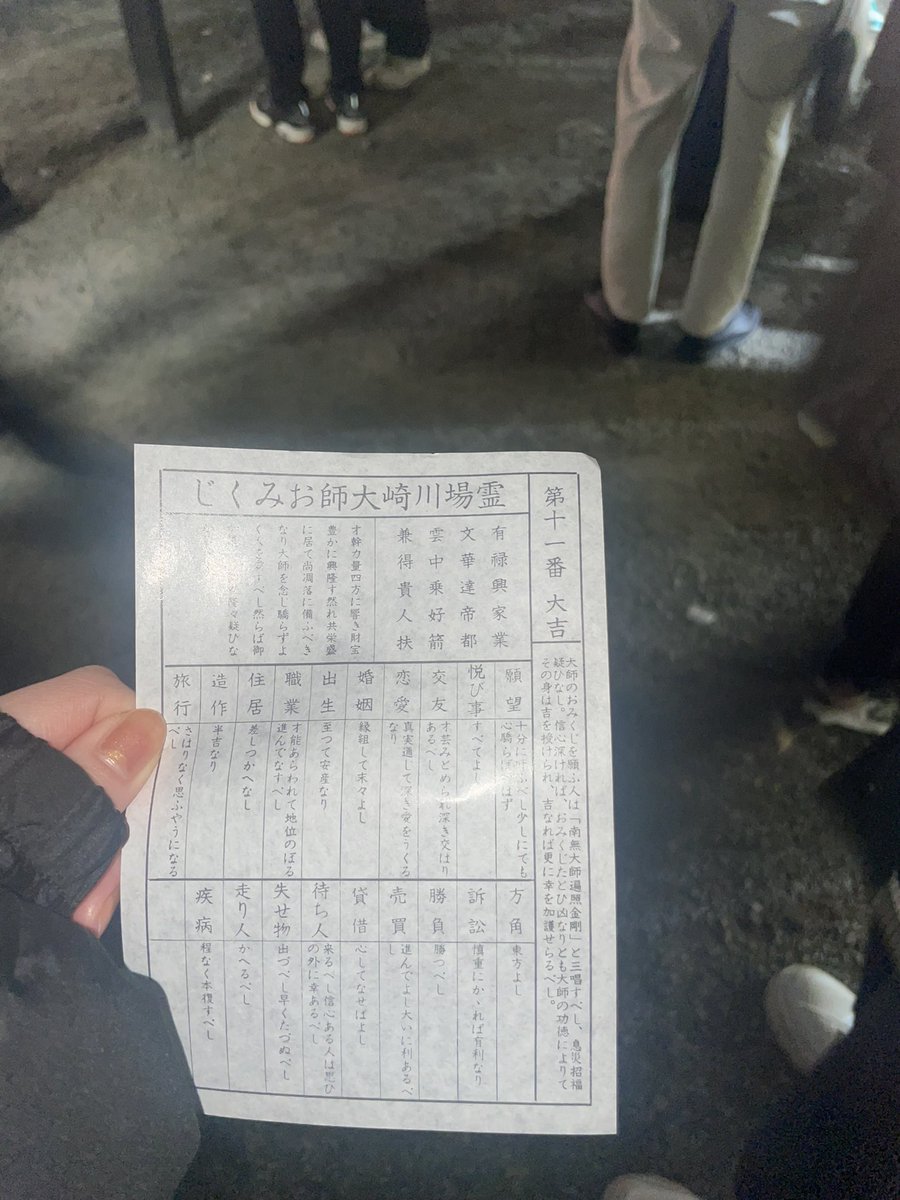 第十一番 大吉
大師のおみくじを願ふ人は「南無大師遍照金剛」と三唱すべし、息災招福
疑ひなし、信心深ければ、おみくじたとひ凶なりとも大師の功徳によりて
その身は吉を授けられ、吉なれば更に幸を加護せらるべし。
霊場川崎大師おみくじ
有禄興家業
文華達帝都
雲中乗好箭
兼得貴人扶
才幹力量四方に響き財宝
豊かに興隆す然れ共栄盛
に居て尚凋落に備ふべき
なり大師を念し驕らずよ
べし然らば御
疑ひな
願望
十分に叶ふべし少しにても
心驕らば
悦び事
すべてよし
交友
才芸みとめられ深き交はり
あるべし
恋愛
真実通して深き愛をうくる
なり
婚姻
縁組して末々よし
出生
至つて安産なり
職業
才能あらわれて地位のぼる
進んでなすべし
住居
差しつかへなし
造作
半吉なり
旅行
さはりなく思ふやうになる
べし
方角
東方よし
訴訟
慎重にかゝれば有利なり
勝負
勝つべし
売買
進んでよし大いに利あるべ
し
貸借
心してなせばよし
待ち人
来るべし信心ある人は思ひ
の外に幸あるべし
失せ物
出づべし早くたづぬべし
走り人
かへるべし
疾病
程なく本復すべし